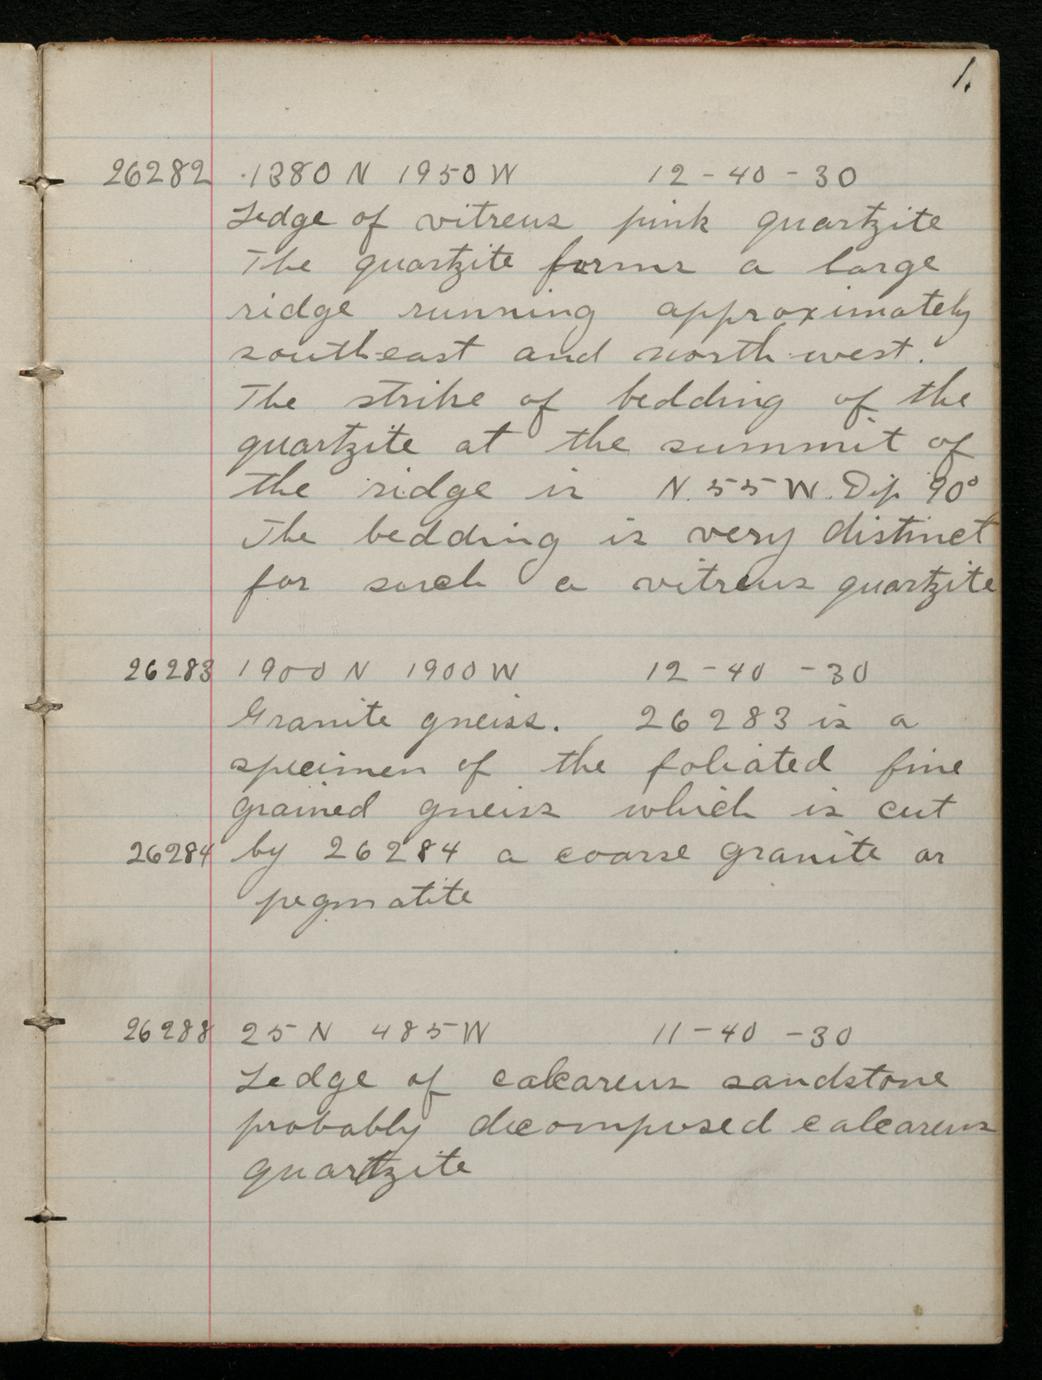 1.
26282 1380 N 1950 W 12-40-30
Ledge of vitreus pink quartzite
The quartzite forms a large
ridge running approximately
southeast and north-west.
The strike of bedding of the
quartzite at the summit of
the ridge is N. 55 W. Dip 90°
The bedding is very distinct
for such a vitreus quartzite
26283 1900 N 1900 W 12-40-30
Granite gneiss. 26283 is a
specimen of the foliated fine
grained gneiss which is cut
26284 by 26284 a coarse granite or
pegmatite
26288 25 N 485 W 11-40-30
Ledge of calcareus sandstone
probably decomposed calcareus
quartzite